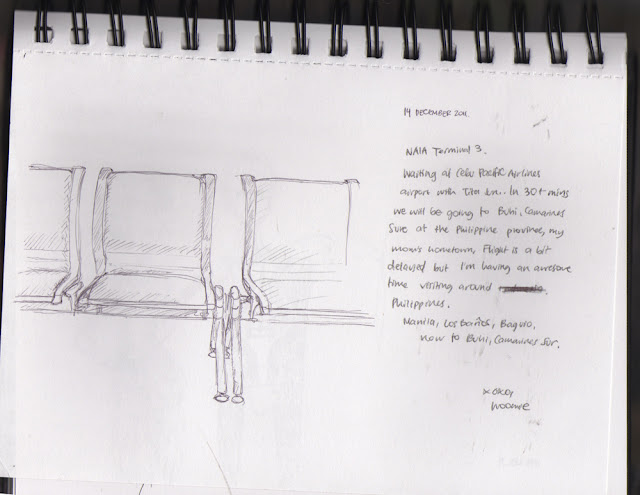 14 DECEMBER 2011.
NAIA Terminal 3.
Waiting at Cebu Pacific Airlines
airport with Tita Lin.. In 30+ mins
we will be going to Buhi, Camarines
Sure at the Philippine province, my
mom's hometown. Flight is a bit
delayed but I'm having an awesome
time visiting around
Philippines.
Manila, Los Baños, Baguio,
now to Buhi, Camarines Sur.